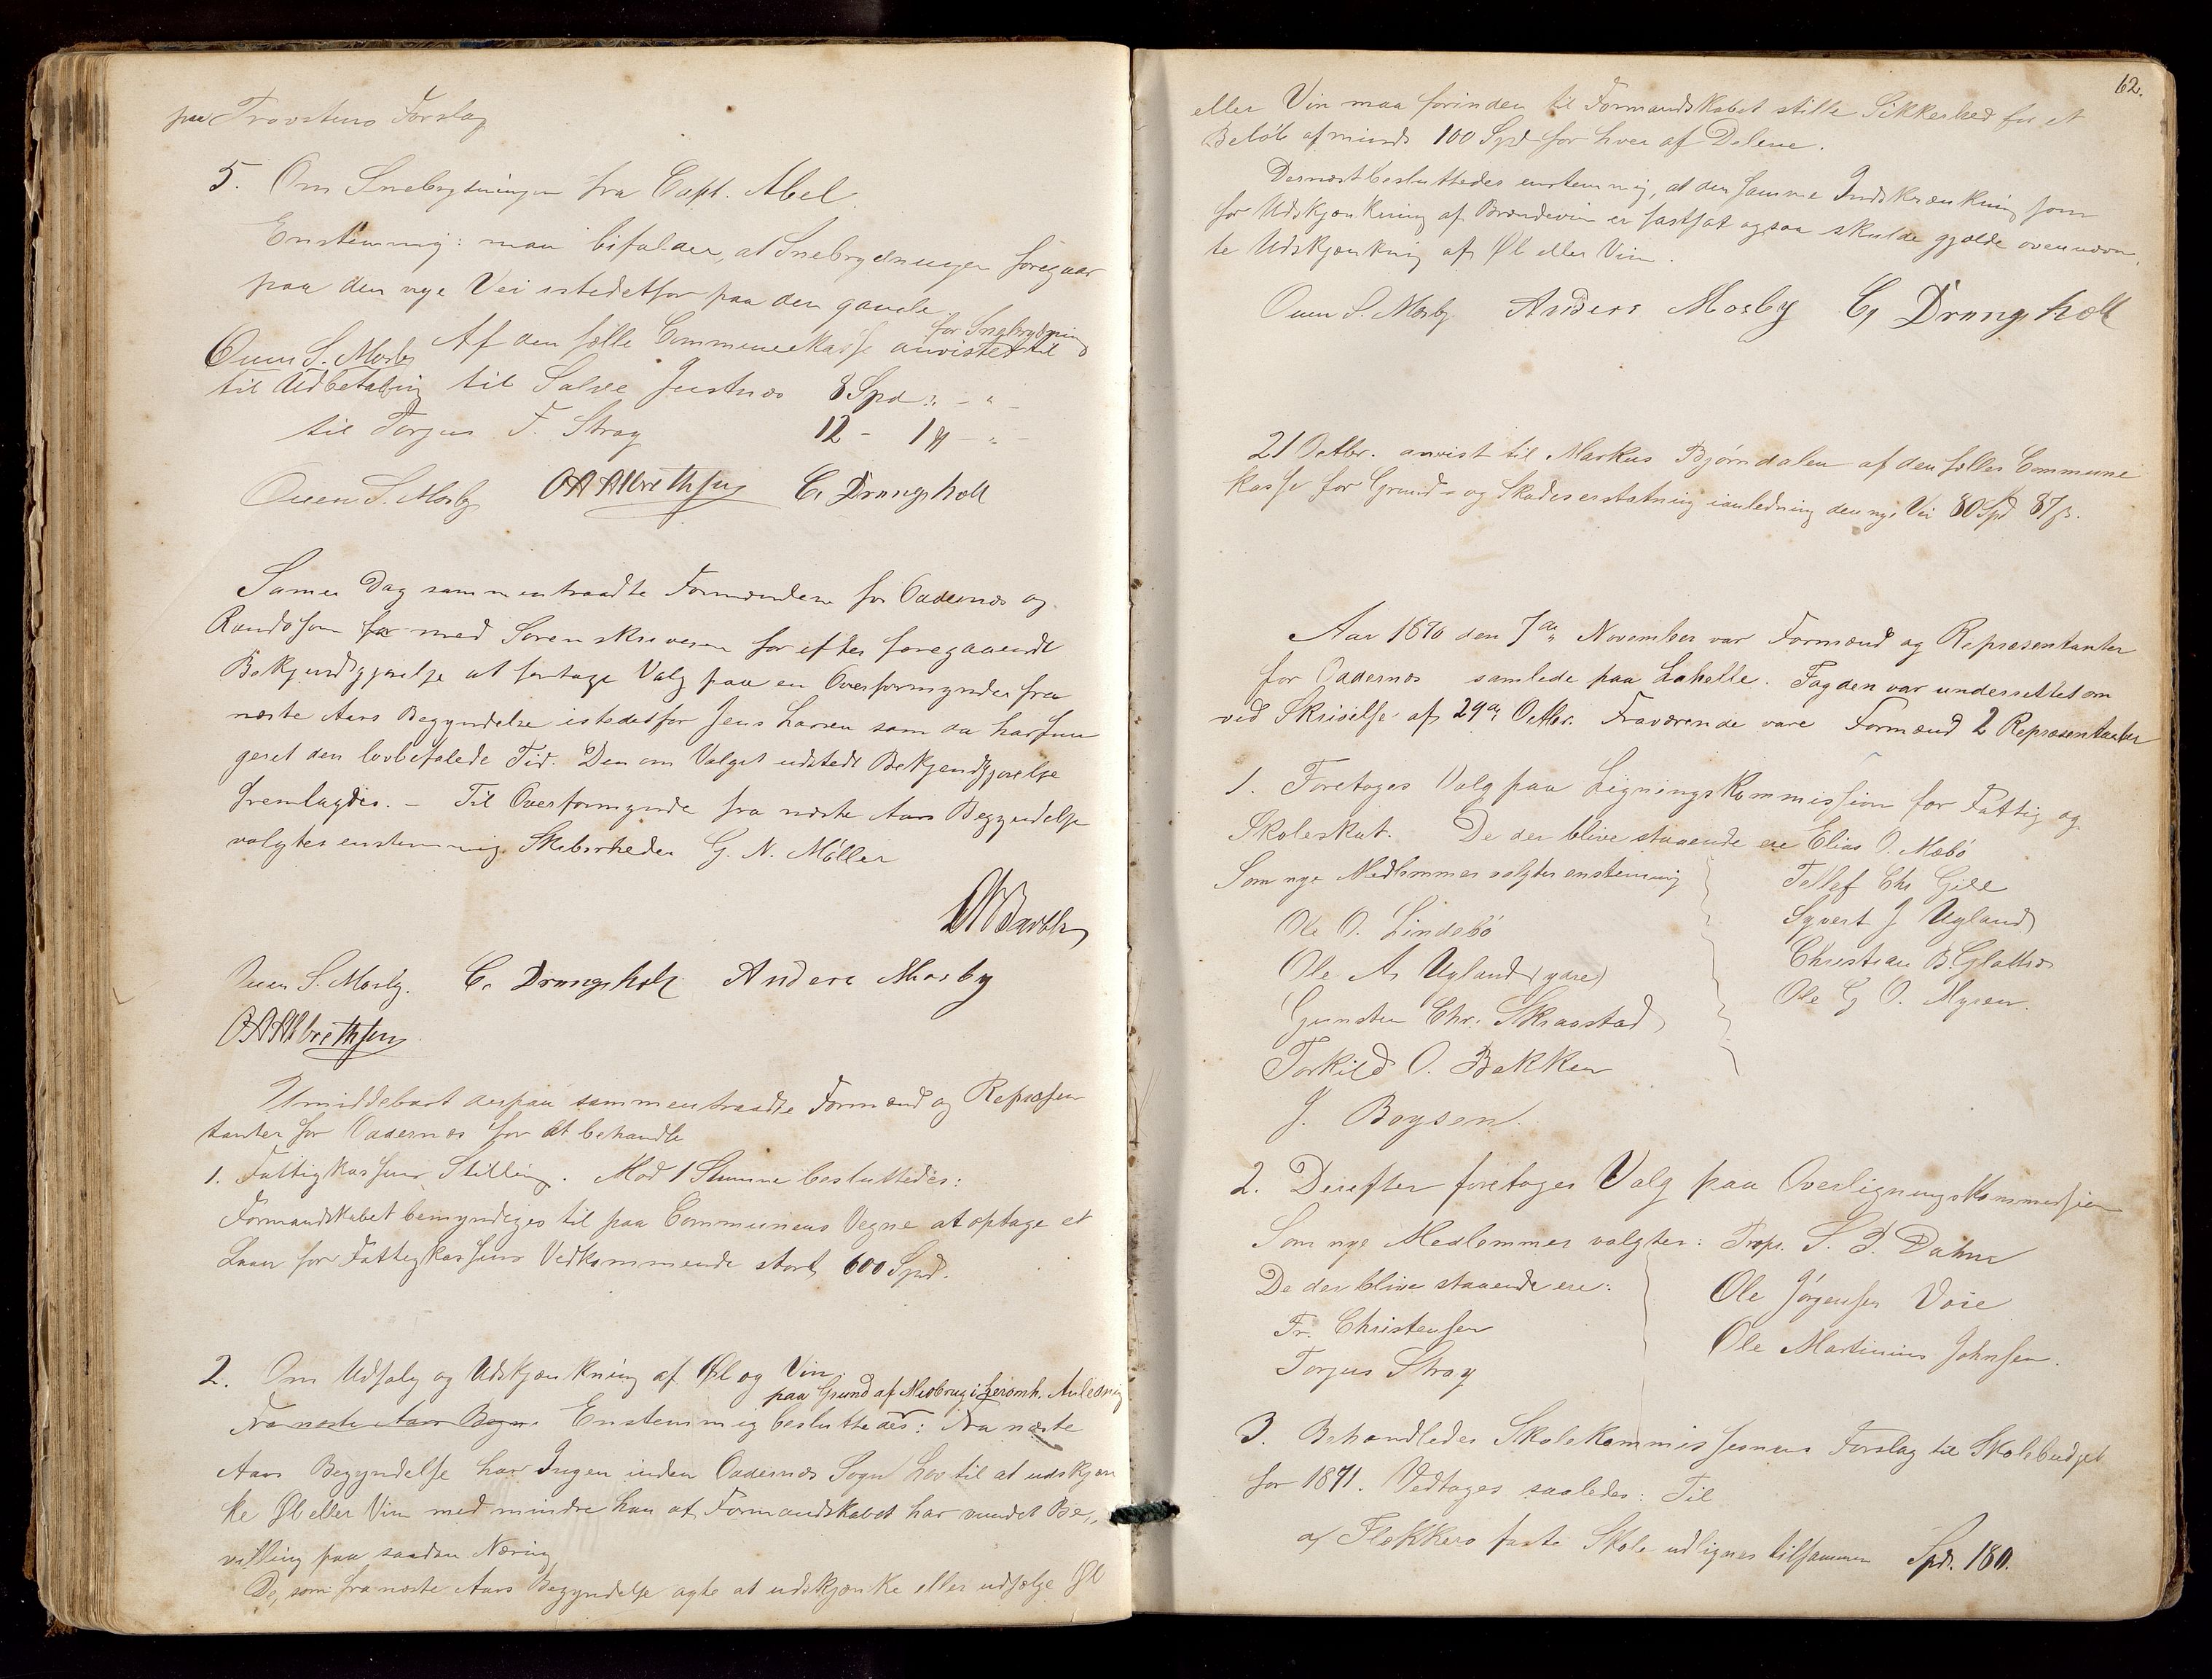 paa Provstens Forslag
5. Om Snebrydningen fra Capt. Abel.
Enstemmig: man bifalder, at Snebrydningen foregaar
paa den nye Vei istedetfor paa den gamle.
for Snebrydning
Ouen S. Mosby Af den fælles Communekasse anvistes til
til Udbetaling til Salve Justnes 8 Spd " - " -
til Torjus F. Stray 12 - 1 ß - " -
Ouen S. Mosby OAAlbrethsen C. Drangsholt
Samme Dag sammentraadte Formændene for Oddernes og
Randøsund med Sorenskriveren for efter foregaaende
Bekjendtgjørelse at foretage Valg paa en Overformynder fra
næste Aars Begyndelse istedetfor Jens Larsen som da har fun
geret den lovbefalede Tid. Den om Valget udstedte Bekjendtgjørelse
fremlagdes. - Til Overformynder fra næste Aars Begyndelse
valgtes enstemmig Skibsrheder G. N. Möller
Ouen S. Mosby. C. Drangsholt Anders Mosby
OAAlbrethsen
Umiddelbart derpaa sammentraadte Formænd og Repræsen
tanter for Oddernes for at behandle
1. Fattigkassens Stilling. Mod 1 Stemme besluttedes:
Formandskabet bemyndiges til paa Communens Vegne at optage et
Laan for Fattigkassens Vedkommende stort 600 Spd.
2. Om Udsalg og Udskjænkning af Øl og Vin.
paa Grund af Misbrug i Anledning
Fra næste Aars Begyn. Enstemmig besluttedes: Fra næste
Aars Begyndelse har Ingen inden Oddernes Sogn Lov til at udskjæn
ke Øl eller Vin med mindre han af Formandskabet har vundet Be,,
villing paa saadan Næring
De, som fra næste Aars Begyndelse agte at udskjænke eller udsælge Øl
62.
eller Vin maa forinden til Formandskabet stille Sikkerhed for et
Beløb af mindst 100 Spd for hver af Delene.
Dernæst besluttedes enstemmig, at den samme Indskrænkning som
for Udskjænkning af Brændevin er fastsat ogsaa skulde gjælde ovennævn,
te Udskjænkning af Øl eller Vin.
Ouen S. Mosby Anders Mosby C. Drangsholt
21 Octbr. anvist til Markus Bjørndalen af den fælles Commune
kasse for Grund- og Skadeserstatning i anledning den nye Vei 80 Spd 87 ß.
Aar 1870 den 7de November var Formænd og Repræsentanter
for Oddernes samlede paa Lahelle. Fogden var underrettet om
ved Skrivelse af 29de Octbr. Fraværende vare Formænd 2 Repræsentanter
1. Foretages Valg paa Ligningskommission for Fattig og
Skoleskat. De der blive staaende ere Elias O. Mæbø
Som nye Medlemmer valgtes enstemmig Tellef Chr Gill
Ole O. Lindebö Syvert J Ugland
Ole A. Ugland (ydre) Christian B.
Gunsten Chr. Skraastad Ole G O. Myren.
Torkild O. Bakken
J. Boysen.
2. Derefter foretages Valg paa Overligningskommission
Som nye Medlemmer valgtes: Props. S. P. Dahm
De der blive staaende ere: Ole Jörgensen Voie
Fr. Christensen Ole Martinius Johnsen.
Torjus Stray
3. Behandledes Skolekommissionens Forslag til Skolebudget
for 1871. Vedtages saaledes: Til
a/ Flekkerø faste Skole udlignes tilsammen Spd. 180.